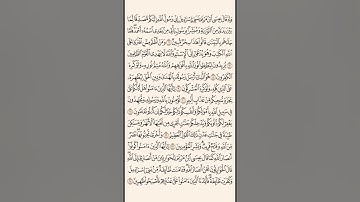 وَإِذْ قَالَ عِيسَى ابْنُ مَرْيَمَ يَٰبَنِي إِسْرَٰٓءِيلَ إِنِّي رَسُولُ اللَّهِ إِلَيْكُم مُّصَدِّقًا لِّمَا
بَيْنَ يَدَيَّ مِنَ التَّوْرَىٰةِ وَمُبَشِّرًا بِرَسُولٍ يَأْتِي مِن بَعْدِي اسْمُهُ أَحْمَدُ فَلَمَّا
جَاءَهُم بِالْبَيِّنَٰتِ قَالُوا هَٰذَا سِحْرٌ مُّبِينٌ ٦ وَمَنْ أَظْلَمُ مِمَّنِ افْتَرَىٰ عَلَى
اللَّهِ الْكَذِبَ وَهُوَ يُدْعَىٰ إِلَى الْإِسْلَٰمِ وَاللَّهُ لَا يَهْدِي الْقَوْمَ الظَّٰلِمِينَ ٧
يُرِيدُونَ لِيُطْفِـُٔوا نُورَ اللَّهِ بِأَفْوَٰهِهِمْ وَاللَّهُ مُتِمُّ نُورِهِ وَلَوْ كَرِهَ
الْكَٰفِرُونَ ٨ هُوَ الَّذِي أَرْسَلَ رَسُولَهُ بِالْهُدَىٰ وَدِينِ الْحَقِّ لِيُظْهِرَهُ
عَلَى الدِّينِ كُلِّهِ وَلَوْ كَرِهَ الْمُشْرِكُونَ ٩ يَٰٓأَيُّهَا الَّذِينَ ءَامَنُوا هَلْ أَدُلُّكُمْ عَلَىٰ
تِجَٰرَةٍ تُنجِيكُم مِّنْ عَذَابٍ أَلِيمٍ ١٠ تُؤْمِنُونَ بِاللَّهِ وَرَسُولِهِ وَتُجَٰهِدُونَ
فِي سَبِيلِ اللَّهِ بِأَمْوَٰلِكُمْ وَأَنفُسِكُمْ ذَٰلِكُمْ خَيْرٌ لَّكُمْ إِن كُنتُمْ تَعْلَمُونَ ١١
يَغْفِرْ لَكُمْ ذُنُوبَكُمْ وَيُدْخِلْكُمْ جَنَّٰتٍ تَجْرِي مِن تَحْتِهَا الْأَنْهَٰرُ وَمَسَٰكِنَ
طَيِّبَةً فِي جَنَّٰتِ عَدْنٍ ذَٰلِكَ الْفَوْزُ الْعَظِيمُ ١٢ وَأُخْرَىٰ تُحِبُّونَهَا نَصْرٌ
مِّنَ اللَّهِ وَفَتْحٌ قَرِيبٌ وَبَشِّرِ الْمُؤْمِنِينَ ١٣ يَٰٓأَيُّهَا الَّذِينَ ءَامَنُوا كُونُوا
أَنصَارَ اللَّهِ كَمَا قَالَ عِيسَى ابْنُ مَرْيَمَ لِلْحَوَارِيِّـۧنَ مَنْ أَنصَارِي إِلَى
اللَّهِ قَالَ الْحَوَارِيُّونَ نَحْنُ أَنصَارُ اللَّهِ فَـَٔامَنَت طَّائِفَةٌ مِّن بَنِي إِسْرَٰٓءِيلَ
وَكَفَرَت طَّائِفَةٌ فَأَيَّدْنَا الَّذِينَ ءَامَنُوا عَلَىٰ عَدُوِّهِمْ فَأَصْبَحُوا ظَٰهِرِينَ ١٤